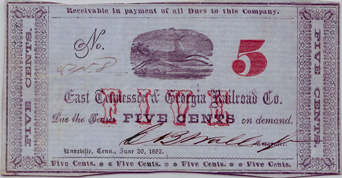 Receivable in payment of all Dues to this Company.
FIVE CENTS.
No.
5
FIVE CENTS.
East Tennessee & Georgia Railroad Co.
FIVE
Due the Bearer FIVE CENTS on demand.
Knoxville, Tenn., June 20, 1862.
Five Cents. Five Cents. Five Cents. Five Cents.